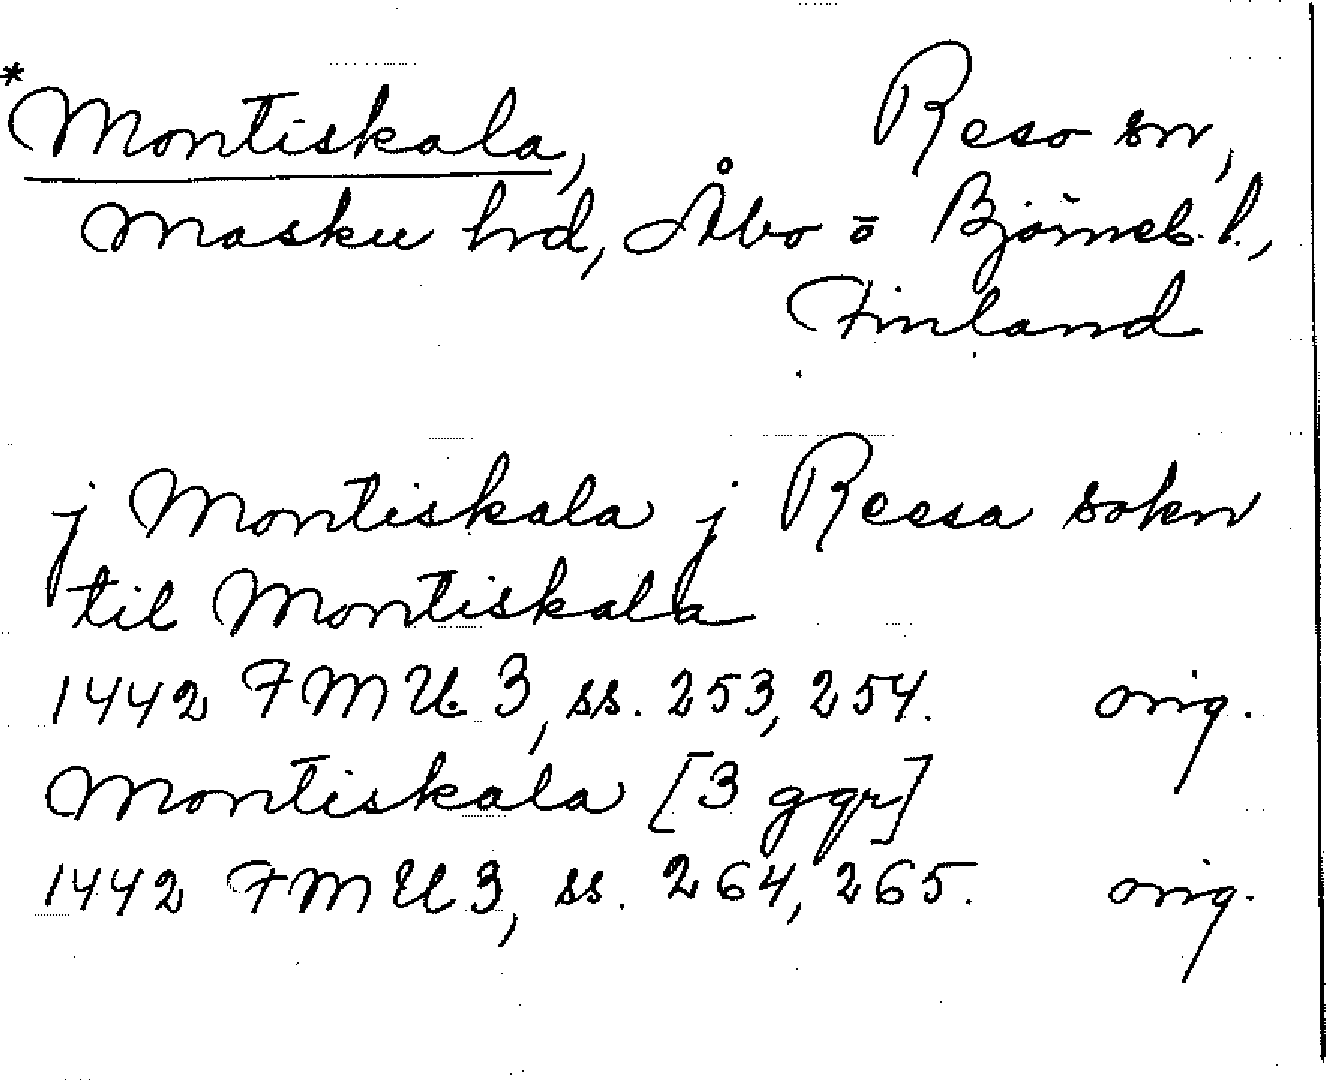 *Montiskala, Reso sn,
Masku hrd, Åbo o Björneb. l.,
Finland
j Montiskala j Reesa sokn
til Montiskala
1442 FMU 3, ss. 253, 254. orig.
Montiskala [3 ggr]
1442 FMU 3, ss. 264, 265. orig.